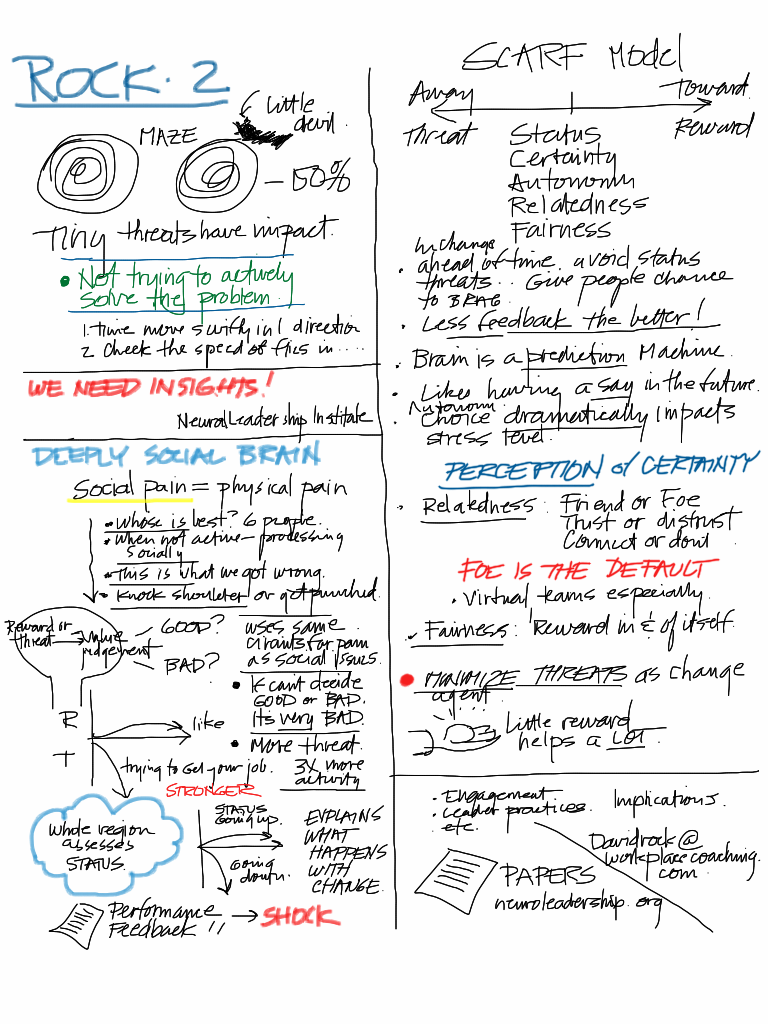 ROCK. 2
Little
devil.
MAZE
– 50%
Tiny threats have impact.
• Not trying to actively
solve the problem.
1. Time move swiftly in 1 direction
2. Check the speed of flics in ....
WE NEED INSIGHTS!
NeuralLeadership Institute
DEEPLY SOCIAL BRAIN
Social pain = physical pain
• Whose is best? 6 people.
• When not active – processing
socially
• This is what we got wrong.
• Knock shoulder or got punched.
Reward or
threat → Nature
judgement
GOOD?
BAD?
uses same
circuits for pain
as social issues.
• If can't decide
GOOD or BAD.
Its very BAD.
• More threat.
3X more
activity
R
T
like
trying to get your job.
STRONGER
Whole region
assesses
STATUS.
STATUS
Going up.
Going
down.
EXPLAINS
WHAT
HAPPENS
WITH
CHANGE.
Performance
Feedback !! → SHOCK
SCARF Model
Away
Toward.
Threat
Reward
Status
Certainty
Autonomy
Relatedness
Fairness
In change
• ahead of time. avoid status
threats... Give people chance
to BRAG.
• Less feedback the better!
• Brain is a prediction Machine.
• Likes having a say in the future.
Autonomy
• Choice dramatically impacts
stress level.
PERCEPTION of CERTAINTY
• Relatedness: Friend or Foe
Trust or distrust
Connect or dont
FOE IS THE DEFAULT
• Virtual teams especially.
• Fairness: Reward in & of itself.
• MINIMIZE THREATS as change
agent.
Little reward
helps a LOT.
• Engagement.
• Leader practices.
etc.
Implications.
Davidrock@
workplacecoaching.
com.
PAPERS
neuroleadership.org